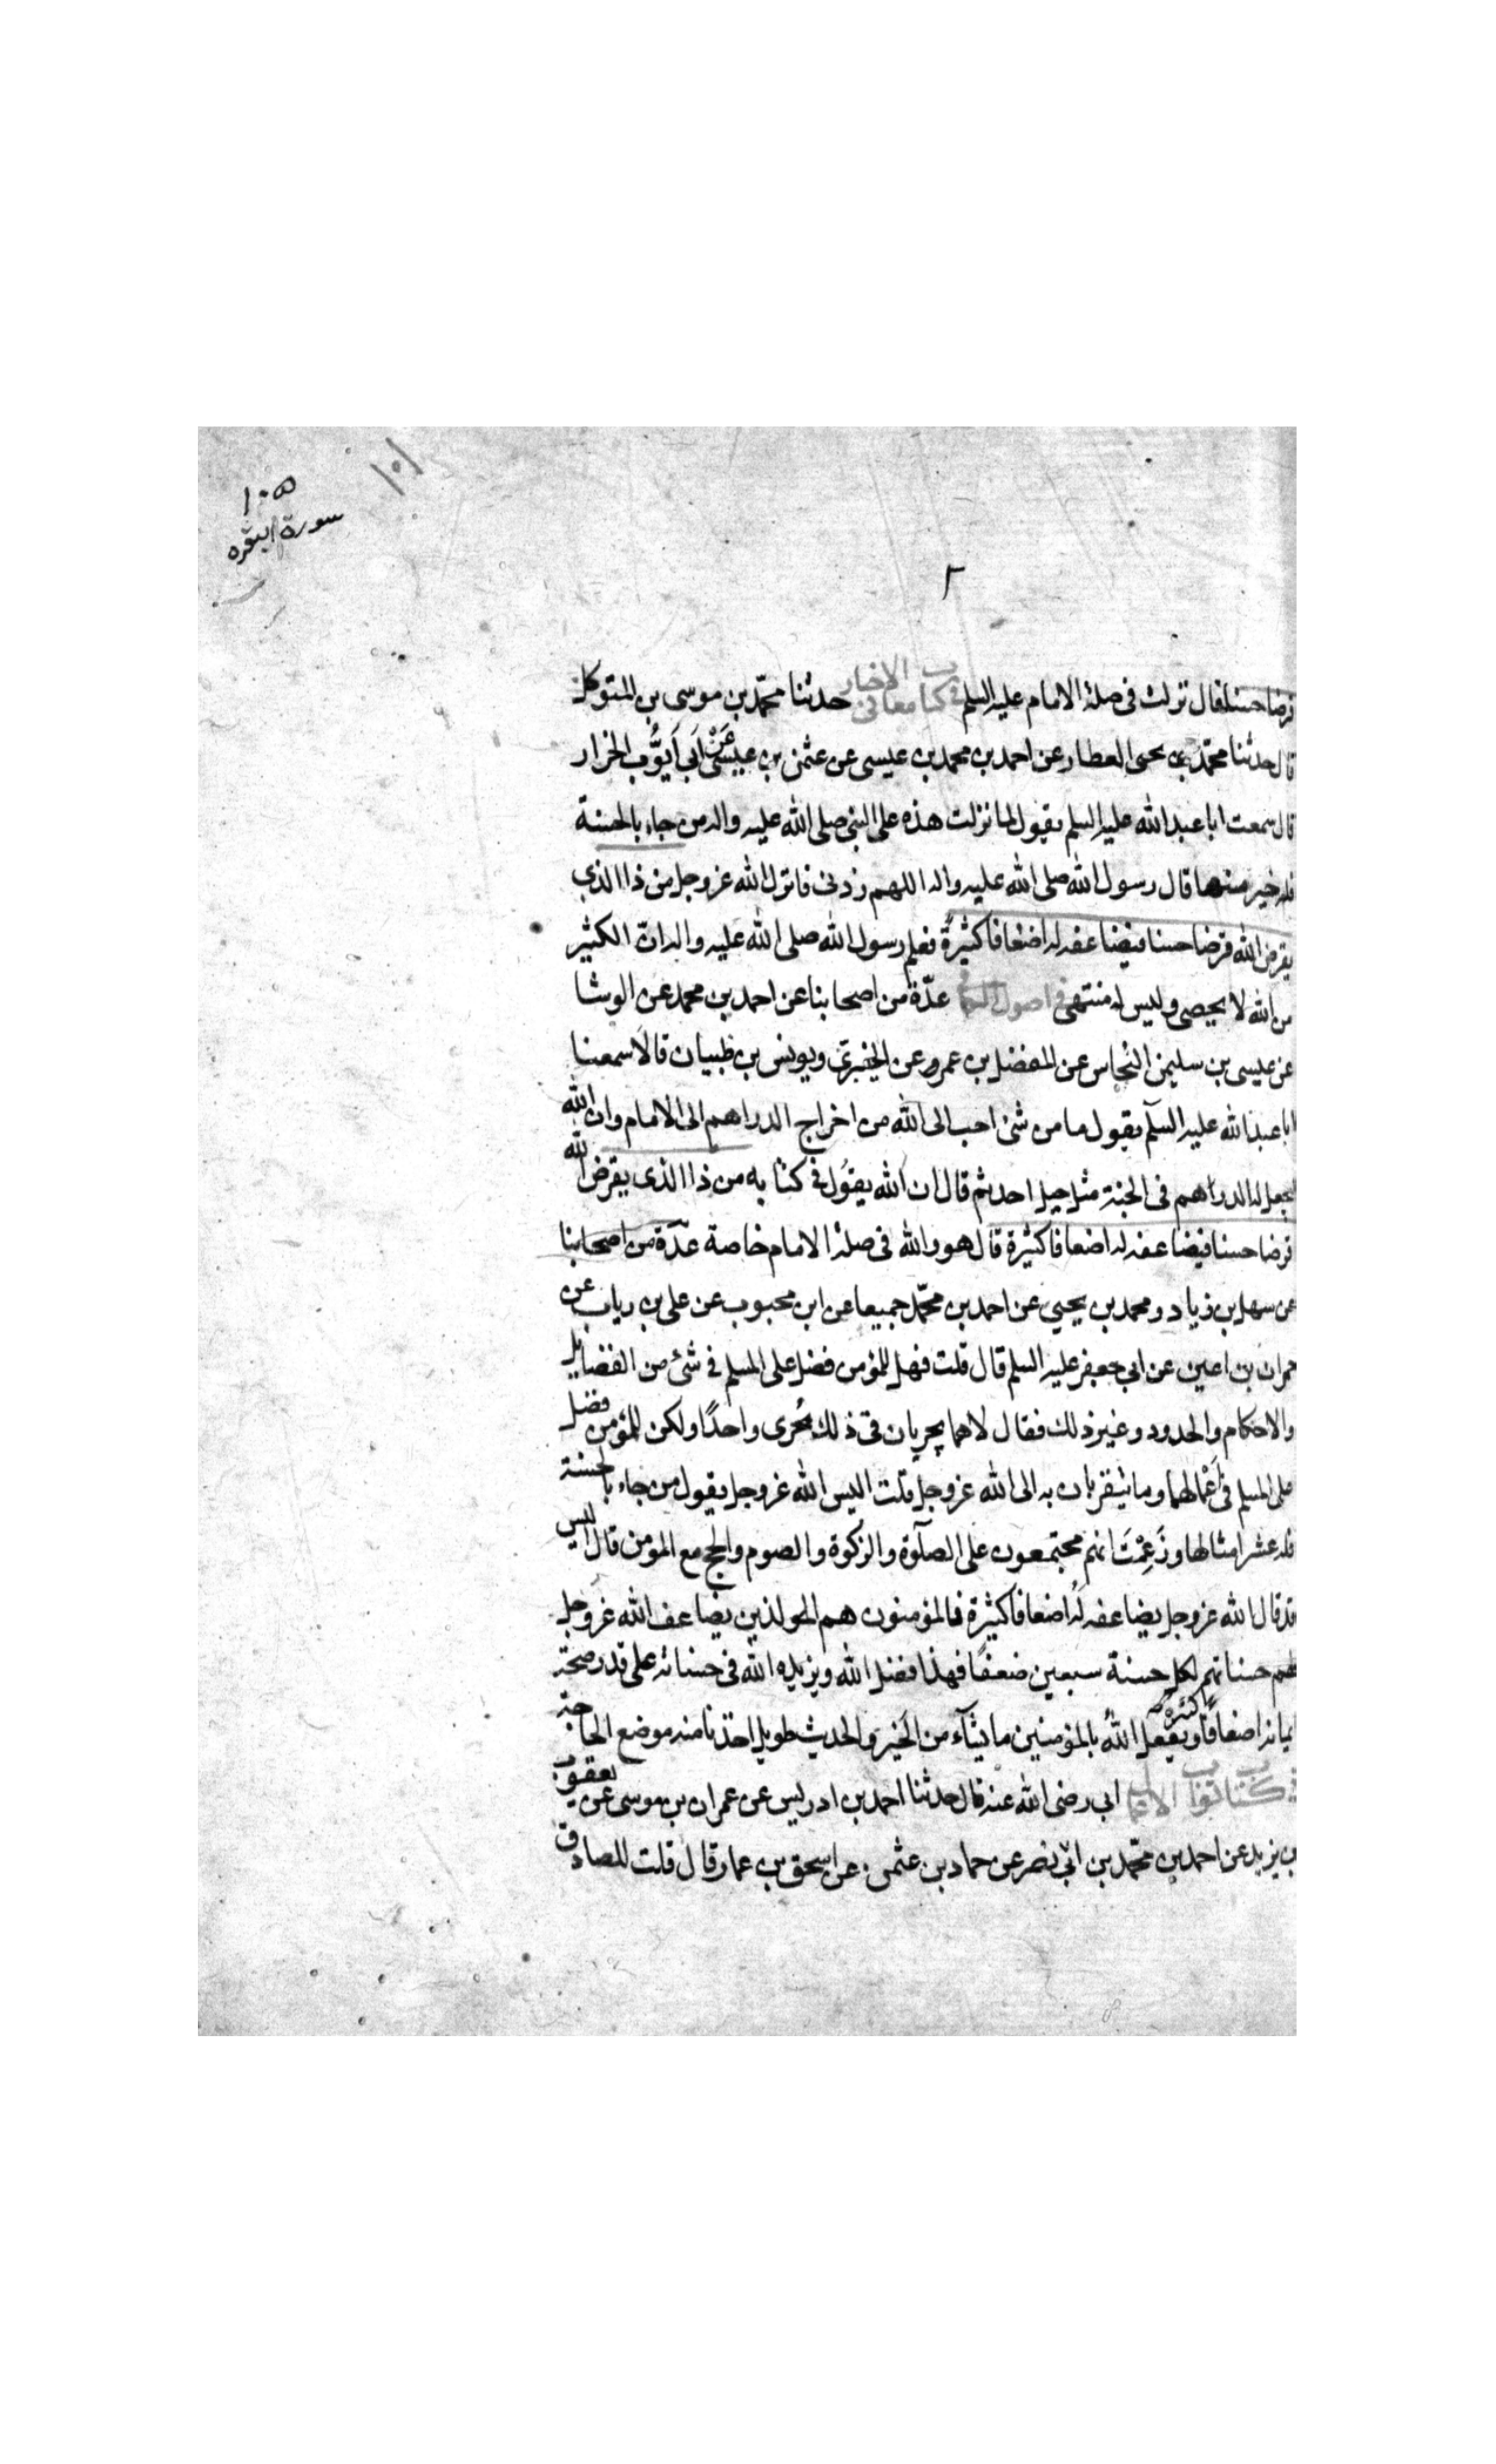 ١٠١
١٠٥
سورة البقره
٢
قرضا حسنا فقال نزلت فى صلة الامام عليه السلم فى كتاب معانى الاخبار حدثنا محمّد بن موسى بن المتوكل
قال حدثنا محمّد بن يحيى العطار عن احمد بن محمد بن عيسى عن عثمن بن عيسى عَنْ اَبى اَيوُّب الخزار
قال سمعت ابا عبد الله عليه السلم يقول لما نزلت هذه على النبى صلى الله عليه واله من جاء بالحسنة
فله خير منها قال رسول الله صلى الله عليه واله اللهم زدنى فانزل الله عز وجل من ذا الذي
يقرض الله قرضا حسنا فيضاعفه له اضعافا كثيرةً فعلم رسول الله صلى الله عليه واله انّ الكثير
من الله لا يحصى وليس له منتهى فى اصول الكافى عدّة من اصحابنا عن احمد بن محمد عن الوشا
عن عيسى بن سليمن النحاس عن المفضل بن عمرو عن الخيبرى ويونس بن ظبيان قالا سمعنا
ابا عبد الله عليه السلم يقول ما من شئ احب الى الله من اخراج الدراهم الى الامام وان الله
ليجعل له الدراهم فى الجنة مثل جبل احد ثم قال ان الله يقول فى كتابه من ذا الذى يقرض الله
قرضا حسنا فيضاعفه له اضعافا كثيرة قال هو والله فى صلة الامام خاصة عدّة من اصحابنا
عن سهل بن زياد ومحمد بن يحيى عن احمد بن محمّد جميعا عن ابن محبوب عن على بن رياب عن
حمران بن اعين عن ابى جعفر عليه السلم قال قلت فهل للمؤمن فضل على المسلم فى شئ من الفضايل
والاحكام والحدود وغير ذلك فقال لا هما يجريان فى ذلك مُجرى واحدًا ولكن للمؤمن فضل
على المسلم فى اَعْمالهما وما يتقربان به الى الله عز وجل قلت اليس الله عز وجل يقول من جاء بالحسنة
فله عشر امثالها وزَعِمْتَ انهم مجتمعون على الصلوة والزكوة والصوم والحج مع المؤمن قال اليس
قد قال الله عز وجل يضاعفه له اضعافا كثيرة فالمؤمنون هم الذين يضاعف الله عز وجل
لهم حسناتهم لكل حسنة سبعين ضعفًا فهذا فضل الله ويزيده الله فى حسناته على قدر صحة
ايمانه اضعافًا كثيرة ويفعل اللهُ بالمؤمنين ما يشآء من الخير والحديث طويل اخذنا منه موضع الحاجة
فى كتاب ثواب الاعمال ابى رضى الله عنه قال حدثنا احمد بن ادريس عن عمران بن موسى عن يعقوب
بن يزيد عن احمد بن محمّد بن ابى نصر عن حماد بن عثمن عن اسحق بن عمار قال قلت للصادق